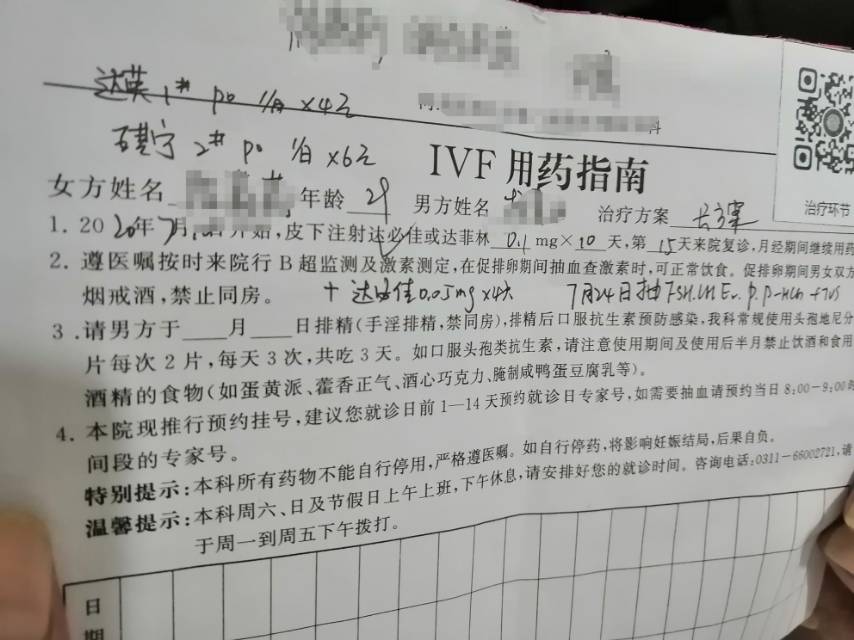 达英 1# po 1/日 ×4天
2# po 1/日 ×6天
IVF 用药指南
女方姓名 年龄 男方姓名 治疗方案 长方案
治疗环节
1. 2020年7月 开始,皮下注射达必佳或达菲林 0.1 mg×10天,第15天来院复诊,月经期间继续用药
2. 遵医嘱按时来院行B超监测及激素测定,在促排卵期间抽血查激素时,可正常饮食。促排卵期间男女双方
烟戒酒,禁止同房。 + 达必佳0.05mg×4天 7月24日抽FSH.LH.E₂.P.β-HCG+TVS
3. 请男方于 月 日排精(手淫排精,禁同房),排精后口服抗生素预防感染,我科常规使用头孢地尼分
片每次2片,每天3次,共吃3天。如口服头孢类抗生素,请注意使用期间及使用后半月禁止饮酒和食用
酒精的食物(如蛋黄派、藿香正气、酒心巧克力、腌制咸鸭蛋豆腐乳等)。
4. 本院现推行预约挂号,建议您就诊日前1—14天预约就诊日专家号,如需要抽血请预约当日8:00-9:00时
间段的专家号。
特别提示:本科所有药物不能自行停用,严格遵医嘱。如自行停药,将影响妊娠结局,后果自负。
温馨提示:本科周六、日及节假日上午上班,下午休息,请安排好您的就诊时间。咨询电话:0311-66002721,请
于周一到周五下午拨打。
日
期